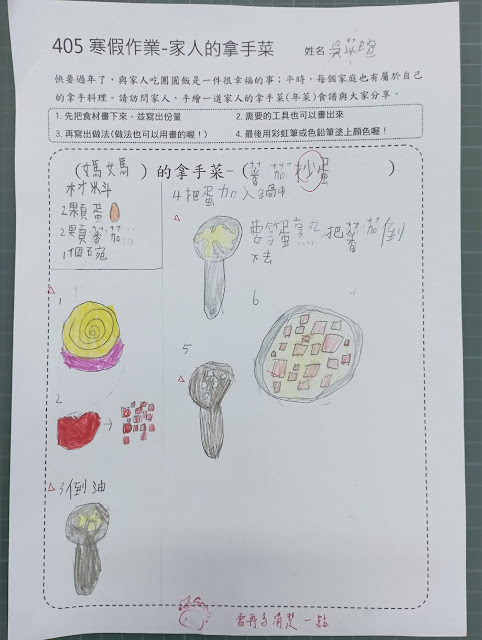 405 寒假作業-家人的拿手菜
姓名
快要過年了,與家人吃團圓飯是一件很幸福的事;平時,每個家庭也有屬於自己
的拿手料理。請訪問家人,手繪一道家人的拿手菜(年菜)食譜與大家分享。
1. 先把食材畫下來,並寫出份量
2. 需要的工具也可以畫出來
3. 再寫出做法(做法也可以用畫的喔!)
4. 最後用彩虹筆或色鉛筆塗上顏色喔!
(媽媽)的拿手菜-(蕃茄炒蛋)
材料
2顆蛋
2顆蕃茄
1個碗
1
2
3倒油
4把蛋加入鍋中
要等蛋熟 把蕃茄倒
下去
5
6
需再多清楚一點